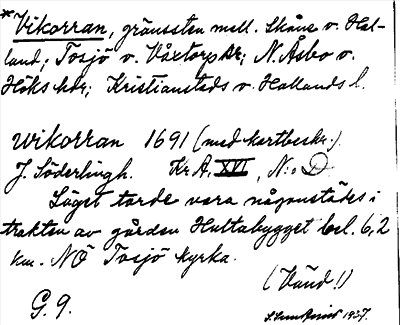 *Vikorran, gränssten mell. Skåne o. Hal-
land; Tosjö o. Våxtorp snr; N. Åsbo o.
Höks hdr; Kristianstads o. Hallands l.
Wikorran 1691 (med kartbeskr.).
J. Söderlingh. Kr. A. XVI, N:o D
Läget torde vara någonstädes i
trakten av gården Huttabygget bel. 6,2
km. NÖ Tosjö kyrka.
(Vänd!)
G. 9. 1927.